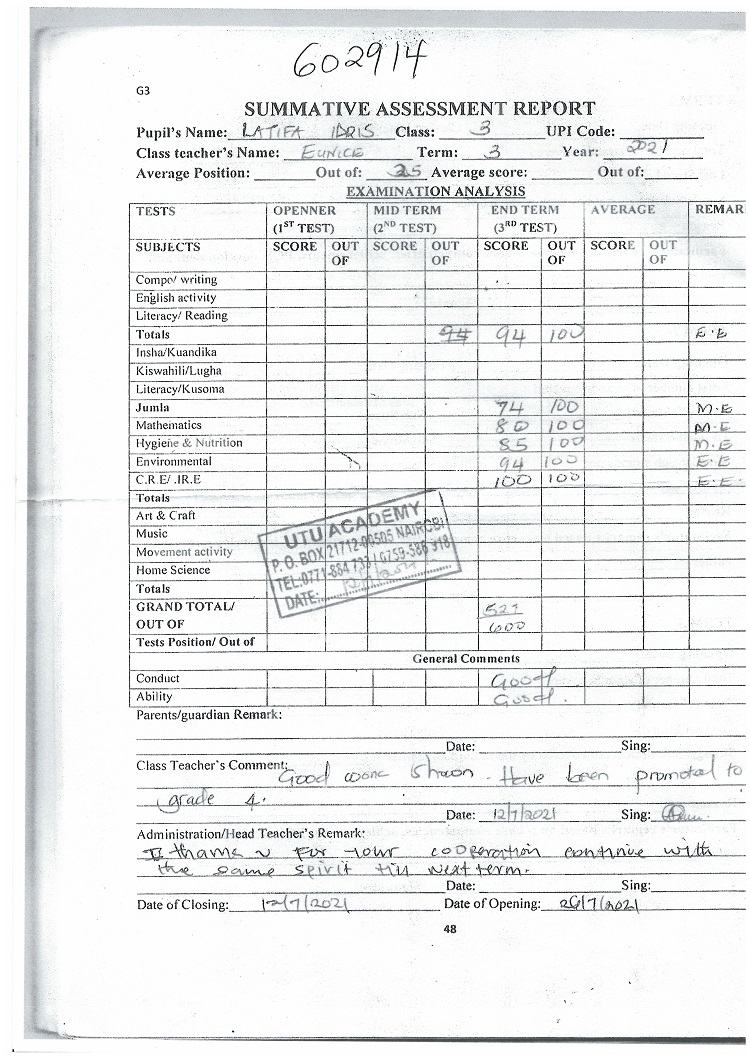 602914
G3
SUMMATIVE ASSESSMENT REPORT
Pupil's Name: LATIFA IDRIS Class: 3 UPI Code:
Class teacher's Name: EUNICE Term: 3 Year: 2021
Average Position: Out of: 25 Average score: Out of:
EXAMINATION ANALYSIS
TESTS OPENNER (1ST TEST) MID TERM (2ND TEST) END TERM (3RD TEST) AVERAGE REMAR
SUBJECTS SCORE OUT OF SCORE OUT OF SCORE OUT OF SCORE OUT OF
Compo/ writing
English activity
Literacy/ Reading
Totals 94 94 100 E.E
Insha/Kuandika
Kiswahili/Lugha
Literacy/Kusoma
Jumla 74 100 M.E
Mathematics 80 100 M.E
Hygiene & Nutrition 85 100 M.E
Environmental 94 100 E.E
C.R.E/ .IR.E 100 100 E.E.
Totals
Art & Craft
Music
Movement activity
Home Science
Totals
UTU ACADEMY
P. O. BOX 21712-00505 NAIROBI
TEL:0771-884 733 / 0759-586 918
DATE:
GRAND TOTAL/ 527
OUT OF 600
Tests Position/ Out of
General Comments
Conduct Good
Ability Good.
Parents/guardian Remark:
Date: Sing:
Class Teacher's Comment: Good work Shawn. Have been promoted to
grade 4.
Date: 12/7/2021 Sing:
Administration/Head Teacher's Remark:
I thank u For your cooperation continue with
the same spirit till next term.
Date: Sing:
Date of Closing: 12/7/2021 Date of Opening: 26/7/2021
48